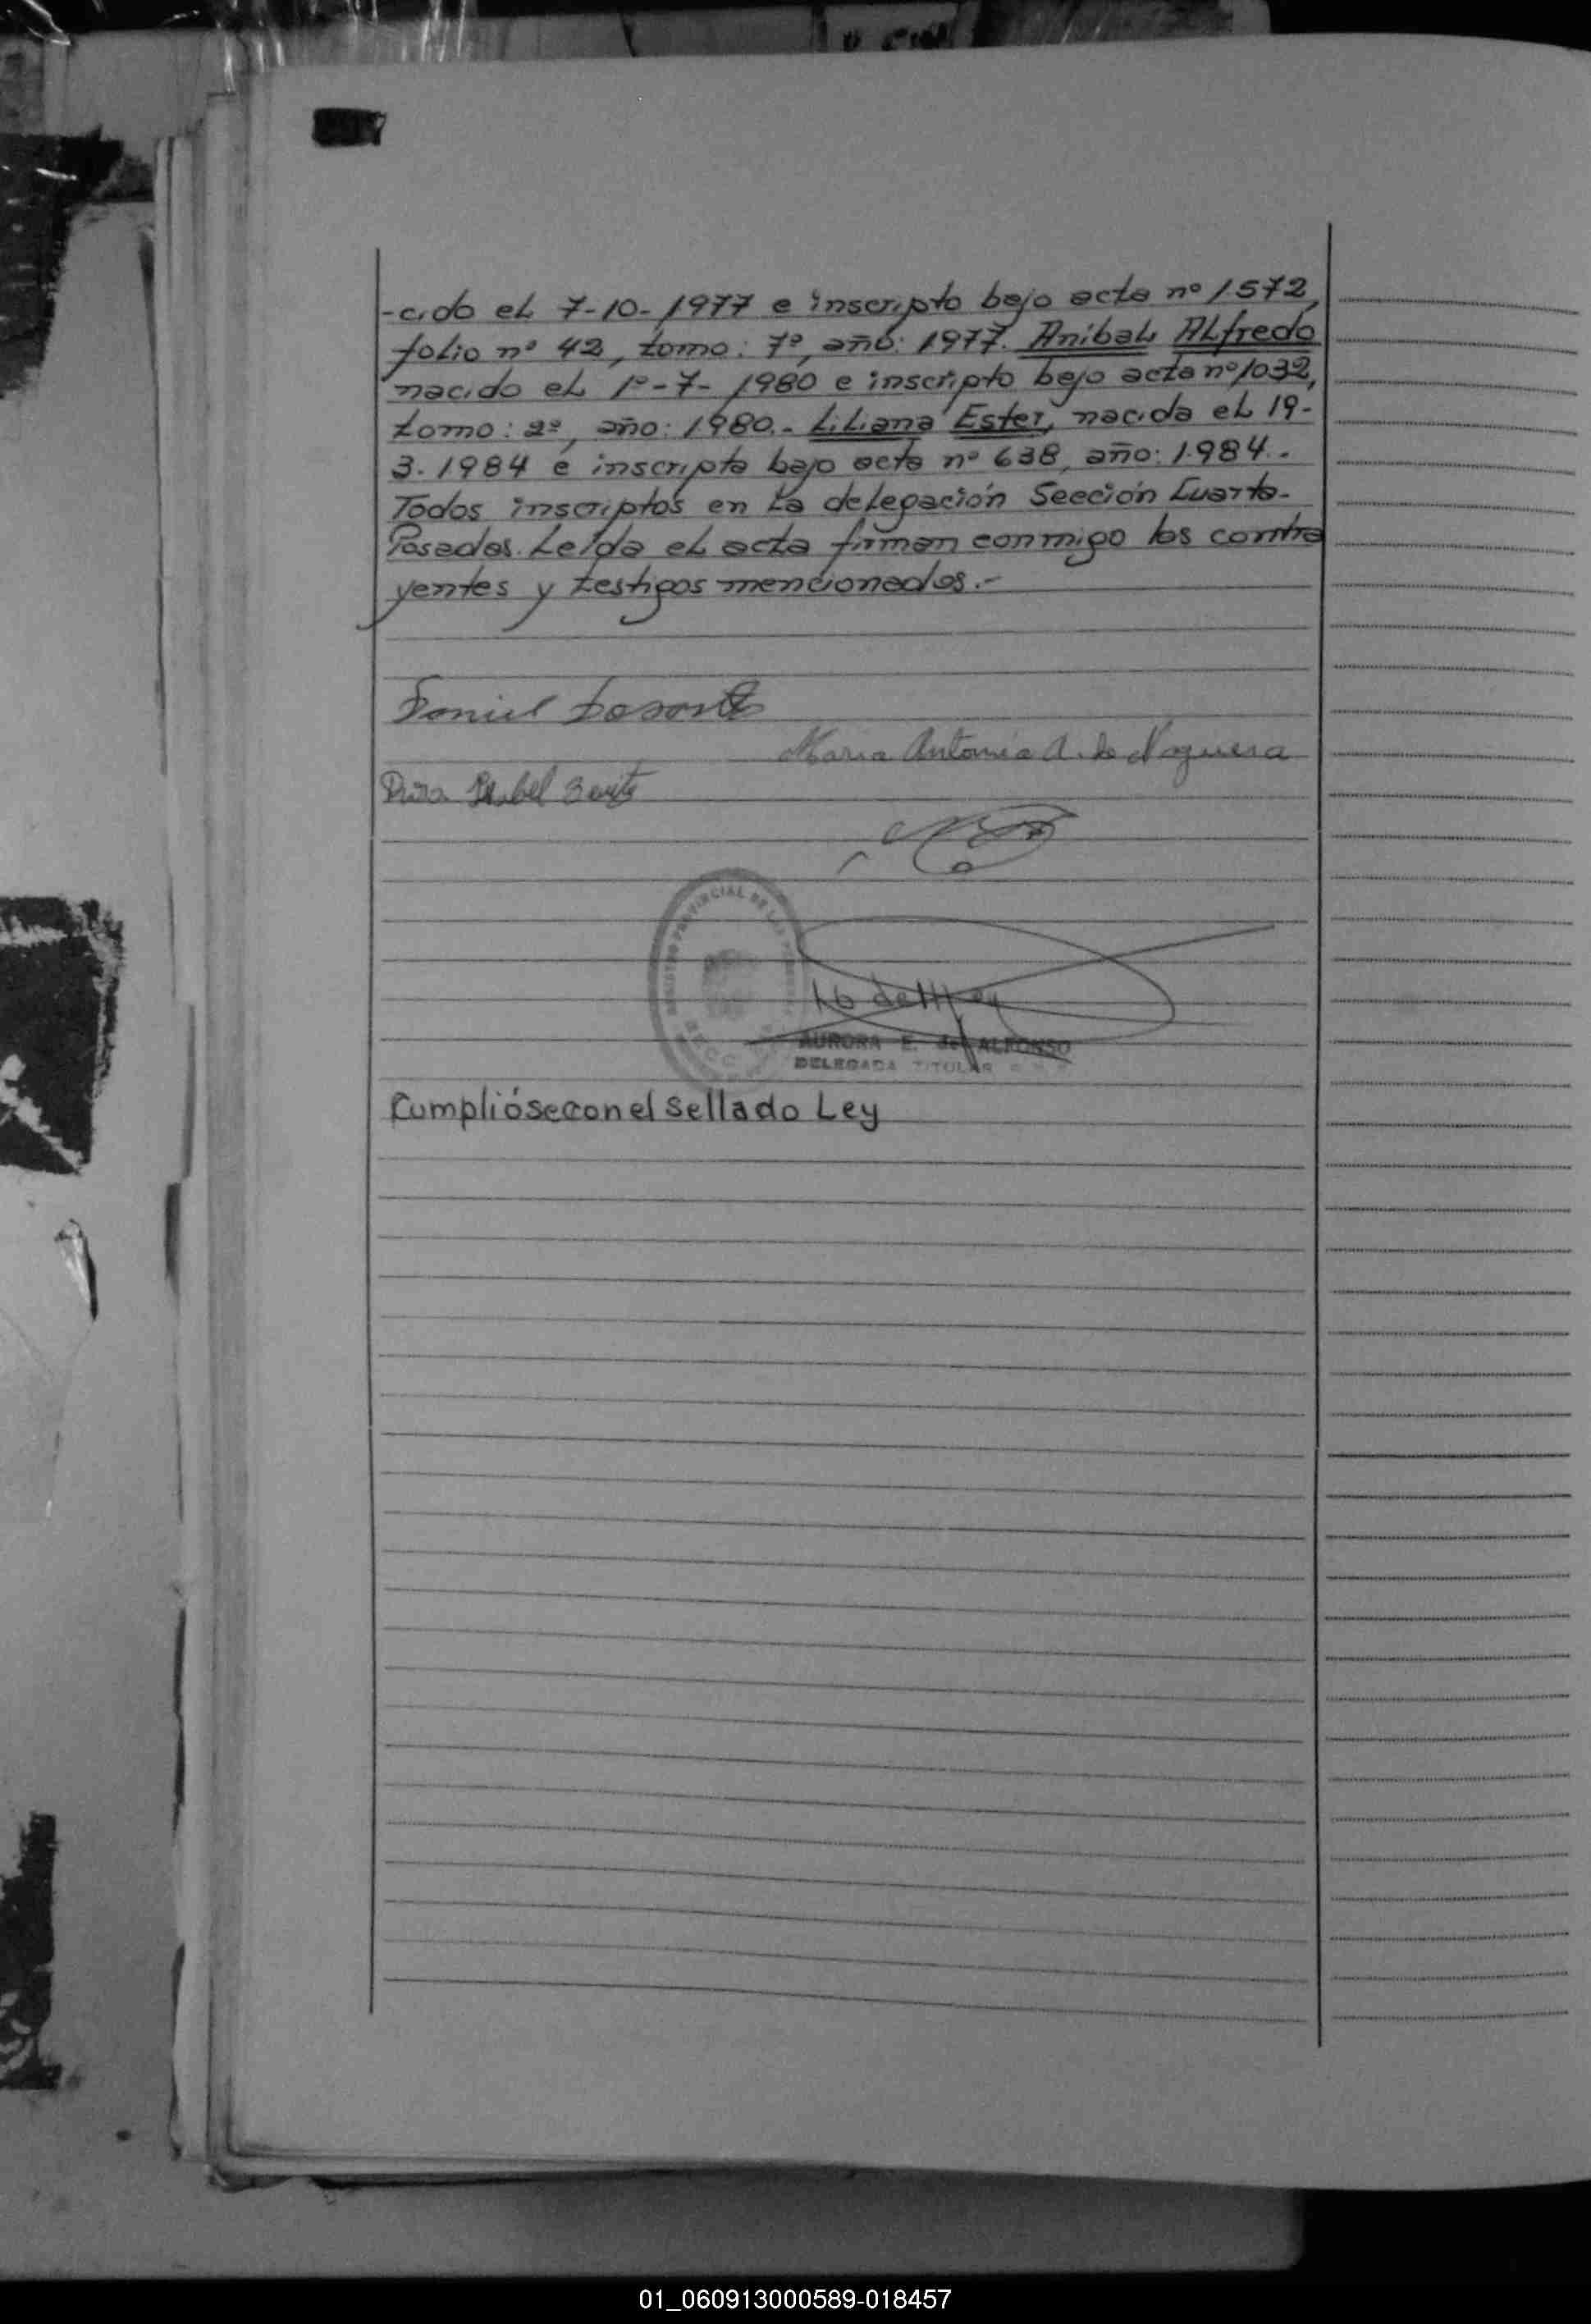 -cido el 7-10-1977 e inscripto bajo acta nº 1572,
folio nº 42, tomo: 7º, año: 1977. Aníbal Alfredo
nacido el 1º-7-1980 e inscripto bajo acta nº 1032,
tomo: 2º, año: 1980.- Liliana Ester, nacida el 19-
3.1984 e inscripta bajo acta nº 638, año: 1984.-
Todos inscriptos en la delegación Sección Cuarta-
Posadas. Leída el acta firman conmigo los contra
yentes y testigos mencionados.-
Daniel
Maria Antonia A. de Noguera
Isabel
REGISTRO PROVINCIAL DE LAS
AURORA E. de ALFONSO
DELEGADA TITULAR
Cumplióse con el Sellado Ley
01_060913000589-018457